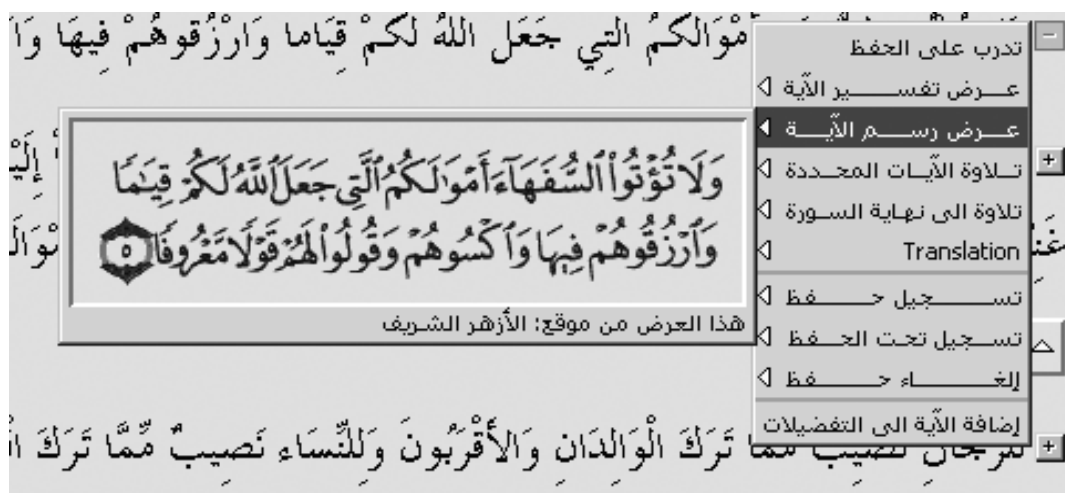 أَمْوَالَكُمُ الَّتِي جَعَلَ اللّهُ لَكُمْ قِيَاماً وَارْزُقُوهُمْ فِيهَا وَا
تدرب على الحفظ
عـــرض تفســـــير الآية
عـــرض رســـم الآيـــة
تــلاوة الآيــات المحــددة
تلاوة الى نهاية الســورة
Translation
تســــــجيل حـــــفظ
تســـجيل تحت الحـــفظ
إلغـــــــاء حـــــفظ
إضافة الآية الى التفضيلات
وَلَا تُؤْتُوا۟ ٱلسُّفَهَآءَ أَمْوَٰلَكُمُ ٱلَّتِى جَعَلَ ٱللَّهُ لَكُمْ قِيَٰمًا
وَٱرْزُقُوهُمْ فِيهَا وَٱكْسُوهُمْ وَقُولُوا۟ لَهُمْ قَوْلًا مَّعْرُوفًا ٥
هذا العرض من موقع: الأزهر الشريف
تَرَكَ الْوَالِدَانِ وَالأَقْرَبُونَ وَلِلنِّسَاء نَصِيبٌ مِّمَّا تَرَكَ